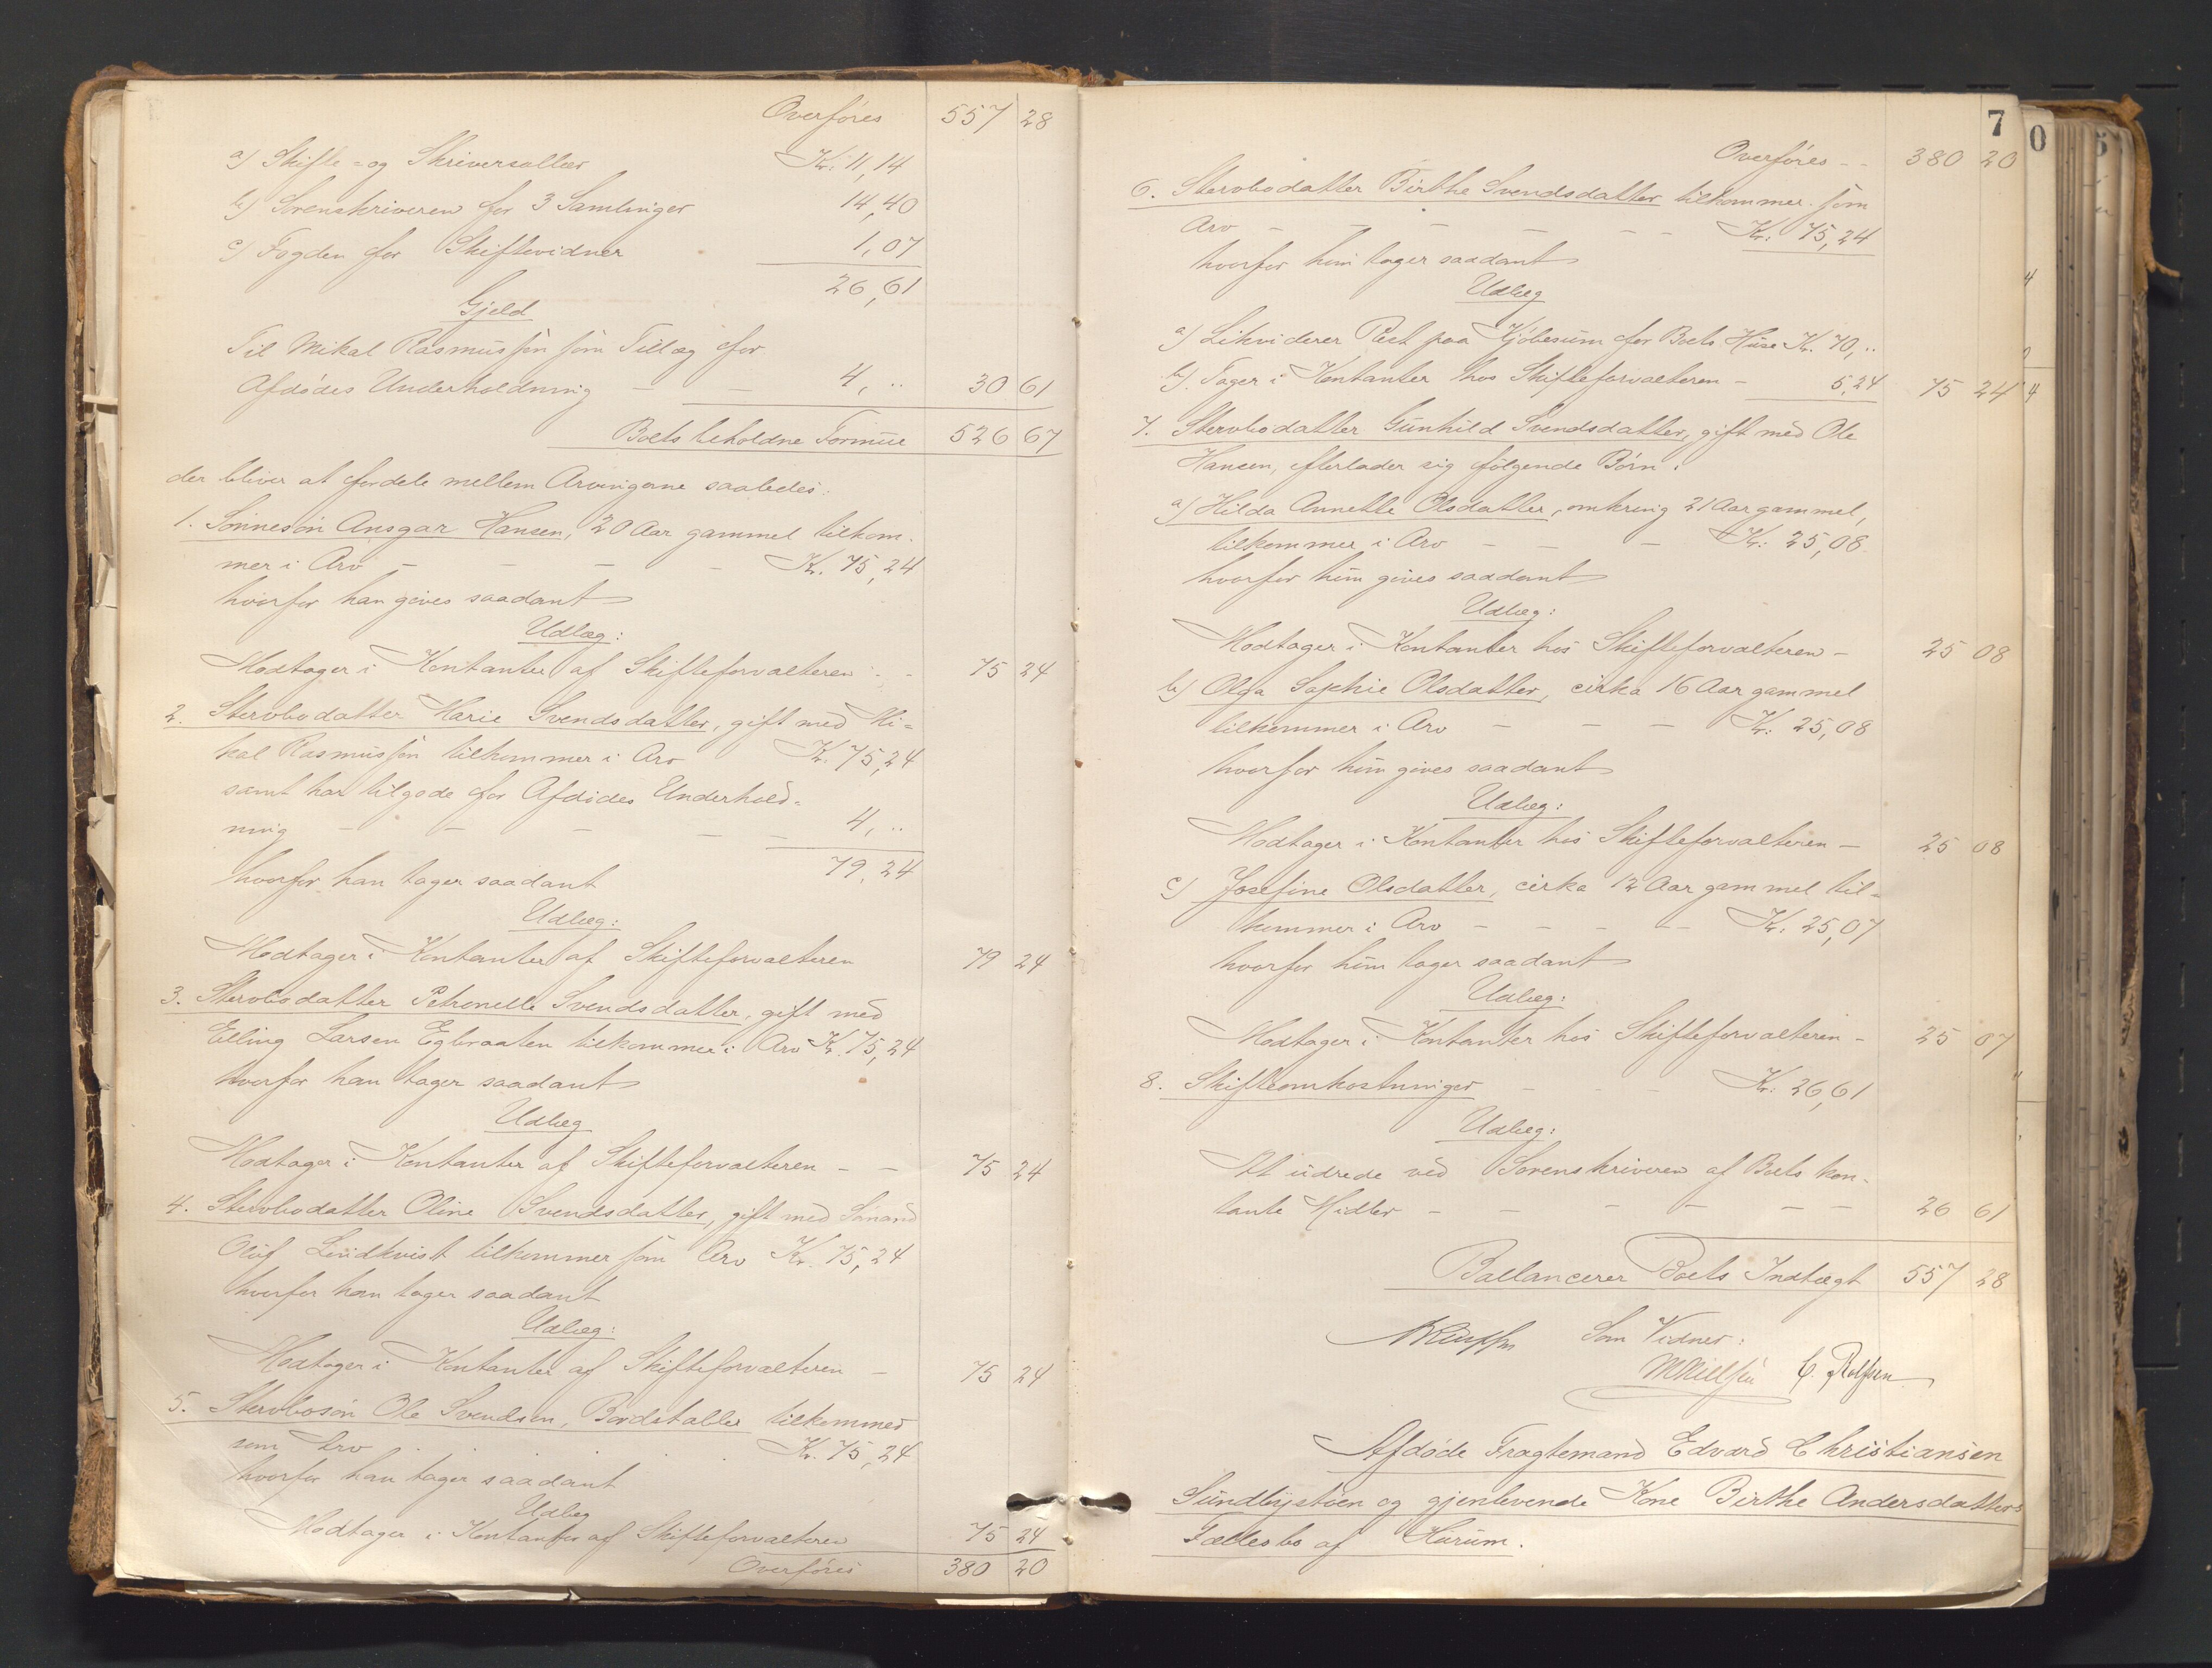 Overføres 557 28
a) Skifte- og Skriversallær Kr. 11,14
b) Sorenskriveren for 3 Samlinger 14,40
c) Fogden for Skiftevidner 1,07
26,61
Gjeld
Til Mikal Rasmussen som Tillæg for
Afdødes Underholdning — — 4, .. 30 61
Boets beholdne Formue 526 67
der bliver at fordele mellem Arvingerne saaledes:
1. Sønnesøn Ansgar Hansen, 20 Aar gammel tilkom-
mer i Arv — — — — Kr. 75,24
hvorfor han gives saadant
Udlæg:
Modtager i Kontanter af Skifteforvalteren - - 75 24
2. Stervbodatter Marie Svendsdatter, gift med Mi-
kal Rasmussen tilkommer i Arv Kr. 75,24
samt har tilgode for Afdødes Underhold-
ning — — — — — 4, ..
79,24
hvorfor han tager saadant
Udlæg:
Modtager i Kontanter af Skifteforvalteren 79 24
3. Stervbodatter Petronelle Svendsdatter, gift med
Elling Larsen Egbraaten tilkommer i Arv Kr. 75,24
hvorfor han tager saadant
Udlæg
Modtager i Kontanter af Skifteforvalteren — — 75 24
4. Stervbodatter Oline Svendsdatter, gift med
Oluf Lindkvist tilkommer som Arv Kr. 75,24
hvorfor han tager saadant
Udlæg:
Modtager i Kontanter af Skifteforvalteren — 75 24
5. Stervbosøn Ole Svendsen, tilkommer
som Arv Kr. 75,24
hvorfor han tager saadant
Udlæg
Modtager i Kontanter af Skifteforvalteren 75 24
Overføres 380 20
7
Overføres - - 380 20
6. Stervbodatter Birthe Svendsdatter tilkommer som
Arv — — — — — — Kr: 75,24
hvorfor hun tager saadant
Udlæg
a) Likviderer Rest paa Kjøbesum for Boets Huse Kr. 70, ..
b). Tager i Kontanter hos Skifteforvalteren — 5,24 75 24
7. Stervbodatter Gunhild Svendsdatter, gift med Ole
Hansen, efterlader sig følgende Børn:
a) Hilda Annette Olsdatter, omkring 21 Aar gammel,
tilkommer i Arv — — — Kr: 25,08
hvorfor hun gives saadant
Udlæg:
Modtager i Kontanter hos Skifteforvalteren — 25 08
b) Olga Sophie Olsdatter, cirka 16 Aar gammel
tilkommer i Arv — — — Kr: 25,08
hvorfor hun gives saadant
Udlæg:
Modtager i Kontanter hos Skifteforvalteren — 25 08
c) Josefine Olsdatter, cirka 12 Aar gammel til-
kommer i Arv — — — — Kr: 25,07
hvorfor hun tager saadant
Udlæg:
Modtager i Kontanter hos Skifteforvalteren — 25 07
8. Skifteomkostninger — — — Kr: 26,61
Udlæg:
At udrede ved Sorenskriveren af Boets kon-
tante Midler — — — — — — 26 61
Ballancerer Boets Indtægt 557 28
Som Vidner:
C. Rolfsen
Afdøde Fragtemand Edvard Christiansen
Sundbystøen og gjenlevende Kone Birthe Andersdatters
Fællesbo af Hurum.